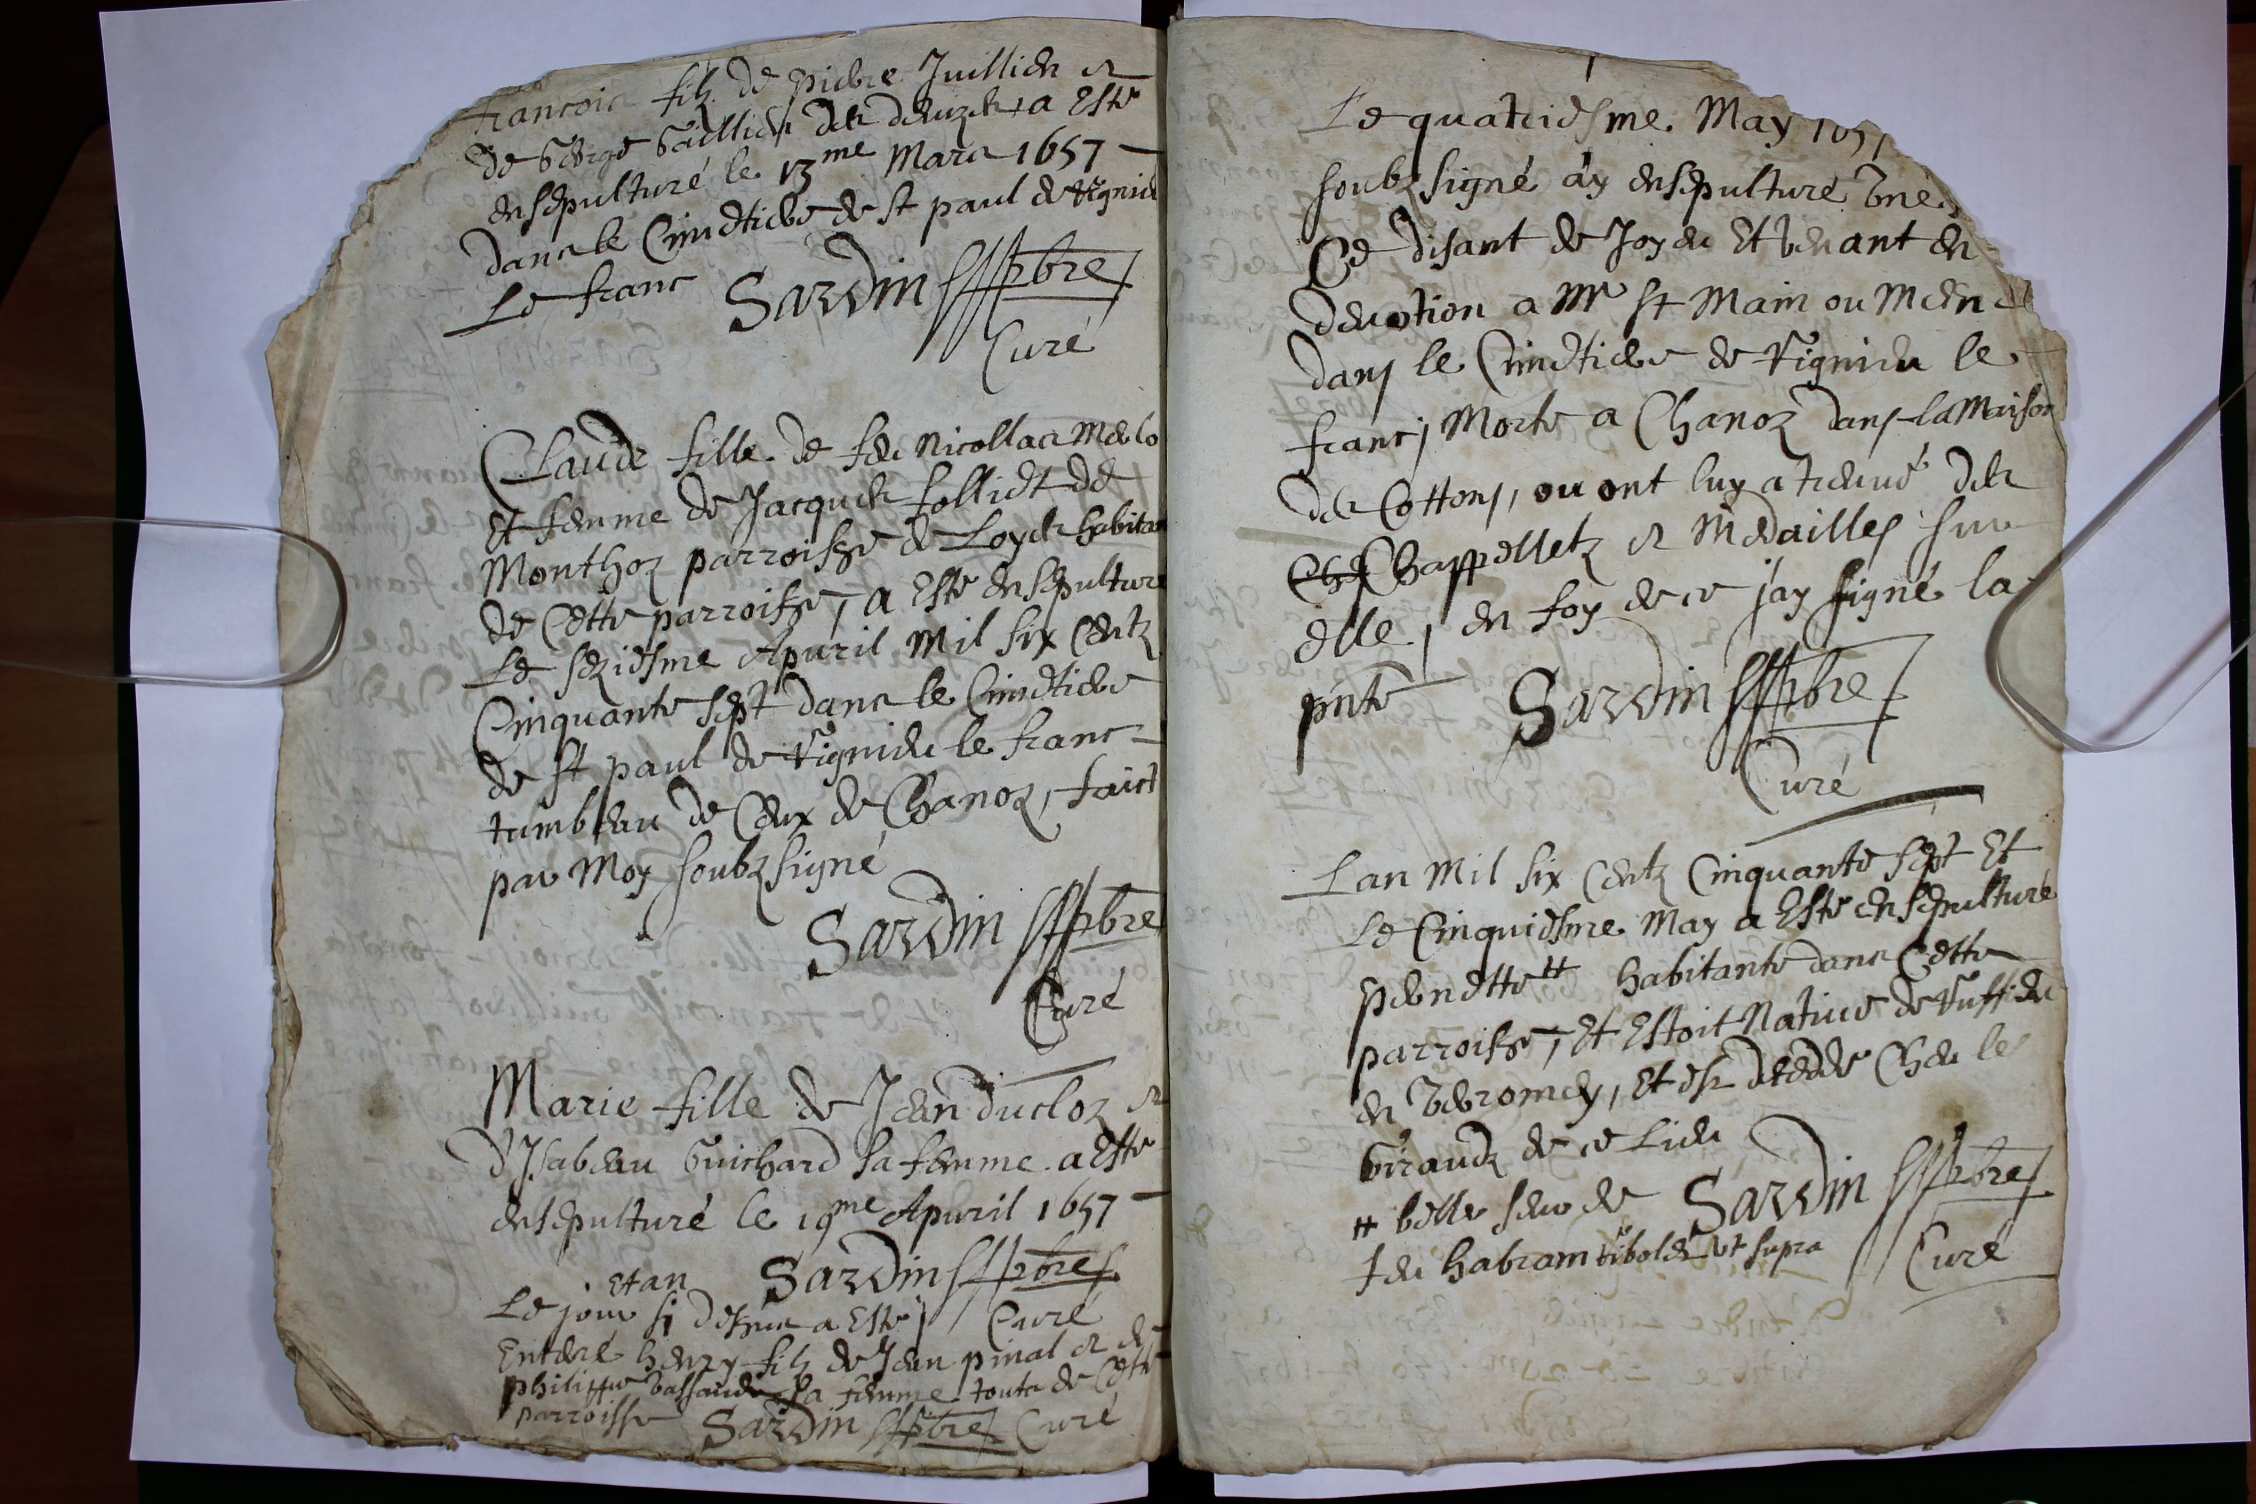 francois filz de pierre Juillien et
de George Gaillien des deuzes a Este
ensepulturé le 13me Mars 1657
dans le Cimetiere de st paul de Vignieu
Le franc Sardin pbre
Curé
Claude fille de feu Nicollas
Et femme de Jacques folliet de
Monthoz parroisse de Loyes habitan
de Cette parroisse, a Este ensepulture
Le seziesme Apuril Mil six Centz
Cinquante sept dans le Cimetiere
de st paul de Vignieu le franc
tumbeau de Ceux de Chanoz, faict
par Moy soubzsigné
Sardin pbre
Curé
Marie fille de Jean ducloz et
d'Isabeau Guichard sa femme a Este
ensepulturé le 19me Apuril 1657
Sardin pbre
Curé
Le jour et an si dessus a Este
Enteré henry filz de Jean pinal et de
philippe sa femme touts de Cette
parroisse Sardin pbre Curé
Le quatriesme May 1657
soubzsigné ay ensepulturé Vne
Ce disant de Joyeu Et Venant en
deuotion a Mr st Main ou Meen
dans le Cimetiere de Vignieu le
franc, Morte a Chanoz dans la Maison
des Cottons, ou ont luy a treuué des
Chappelletz et Medailles sur
elle, en foy de ce j'ay signé la
pnte Sardin pbre
Curé
Lan Mil six Centz Cinquante sept Et
Le Cinquiesme May a Este ensepulturé
pernette # habitante dans Cette
parroisse, Et Estoit Natiue de Ruffieu
en Veromey, Et est decede Cheu les
Giraudz de ce Lieu
# belle seur de Sardin pbre
feu habram tibolet Vt supra Curé